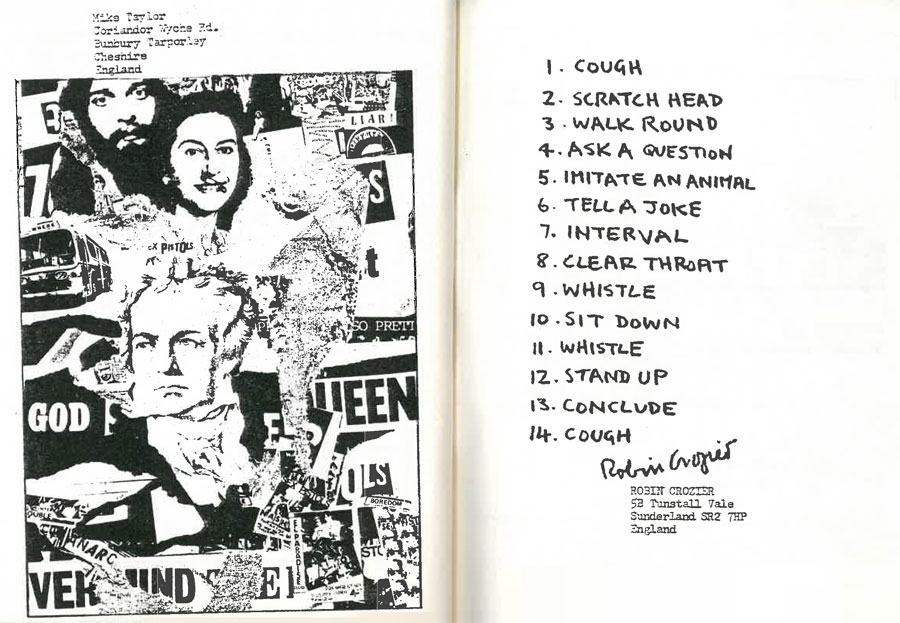 Mike Taylor
Coriandor Wyche Rd.
Bunbury Tarporley
Cheshire
England
3
LIAR!
7
S
WHERE?
EX PISTOLS
t
SO PRETT
GOD S
UEEN
OLS
BOREDOM
ANARC
VER MIND
E
1. COUGH
2. SCRATCH HEAD
3. WALK ROUND
4. ASK A QUESTION
5. IMITATE AN ANIMAL
6. TELL A JOKE
7. INTERVAL
8. CLEAR THROAT
9. WHISTLE
10. SIT DOWN
11. WHISTLE
12. STAND UP
13. CONCLUDE
14. COUGH
Robin Crozier
ROBIN CROZIER
5B Tunstall Vale
Sunderland SR2 7HP
England